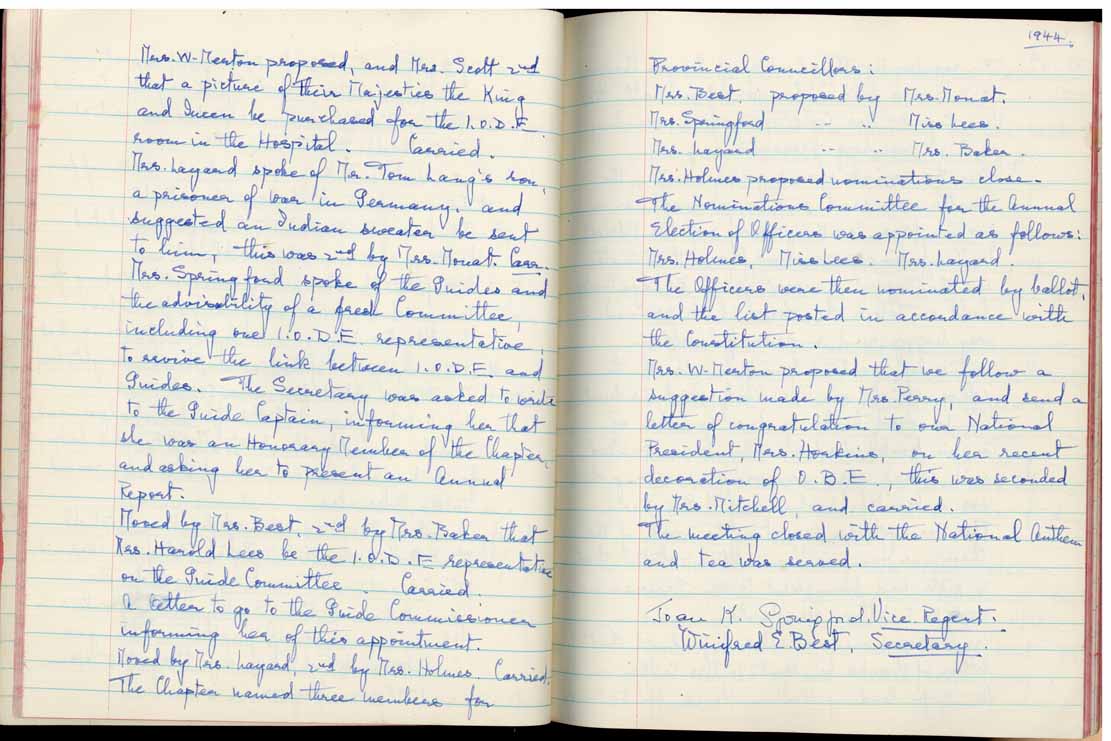 Mrs. W-Merton proposed, and Mrs. Scott 2nd
that a picture of their Majesties the King
and Queen be purchased for the I.O.D.E.
room in the Hospital. Carried.
Mrs. Layard spoke of Mr. Tom Lang's son,
a prisoner of war in Germany, and
suggested an Indian sweater be sent
to him, this was 2nd by Mrs. Mouat. Carr.
Mrs. Springford spoke of the Guides and
the advisability of a fresh Committee,
including one I.O.D.E. representative
to revive the link between I.O.D.E. and
Guides. The Secretary was asked to write
to the Guide Captain, informing her that
she was an Honorary Member of the Chapter,
and asking her to present an Annual
Report.
Moved by Mrs. Best, 2nd by Mrs. Baker that
Mrs. Harold Lees be the I.O.D.E representative
on the Guide Committee. Carried.
A letter to go to the Guide Commissioner
informing her of this appointment.
Moved by Mrs. Layard, 2nd by Mrs. Holmes. Carried.
The Chapter named three members for
1944.
Provincial Councillors:
Mrs. Best. proposed by Mrs. Mouat.
Mrs. Springford -- .. Miss Lees.
Mrs. Layard -- -- Mrs. Baker.
Mrs. Holmes proposed nominations close.
The Nominations Committee for the Annual
Election of Officers was appointed as follows:
Mrs. Holmes, Miss Lees. Mrs. Layard.
The Officers were then nominated by ballot,
and the list posted in accordance with
the Constitution.
Mrs. W-Merton proposed that we follow a
suggestion made by Mrs. Perry, and send a
letter of congratulation to our National
President, Mrs. Horkins, on her recent
decoration of O.B.E., this was seconded
by Mrs. Mitchell, and carried.
The meeting closed with the National Anthem
and tea was served.
Joan K. Springford. Vice Regent.
Winifred E. Best, Secretary.